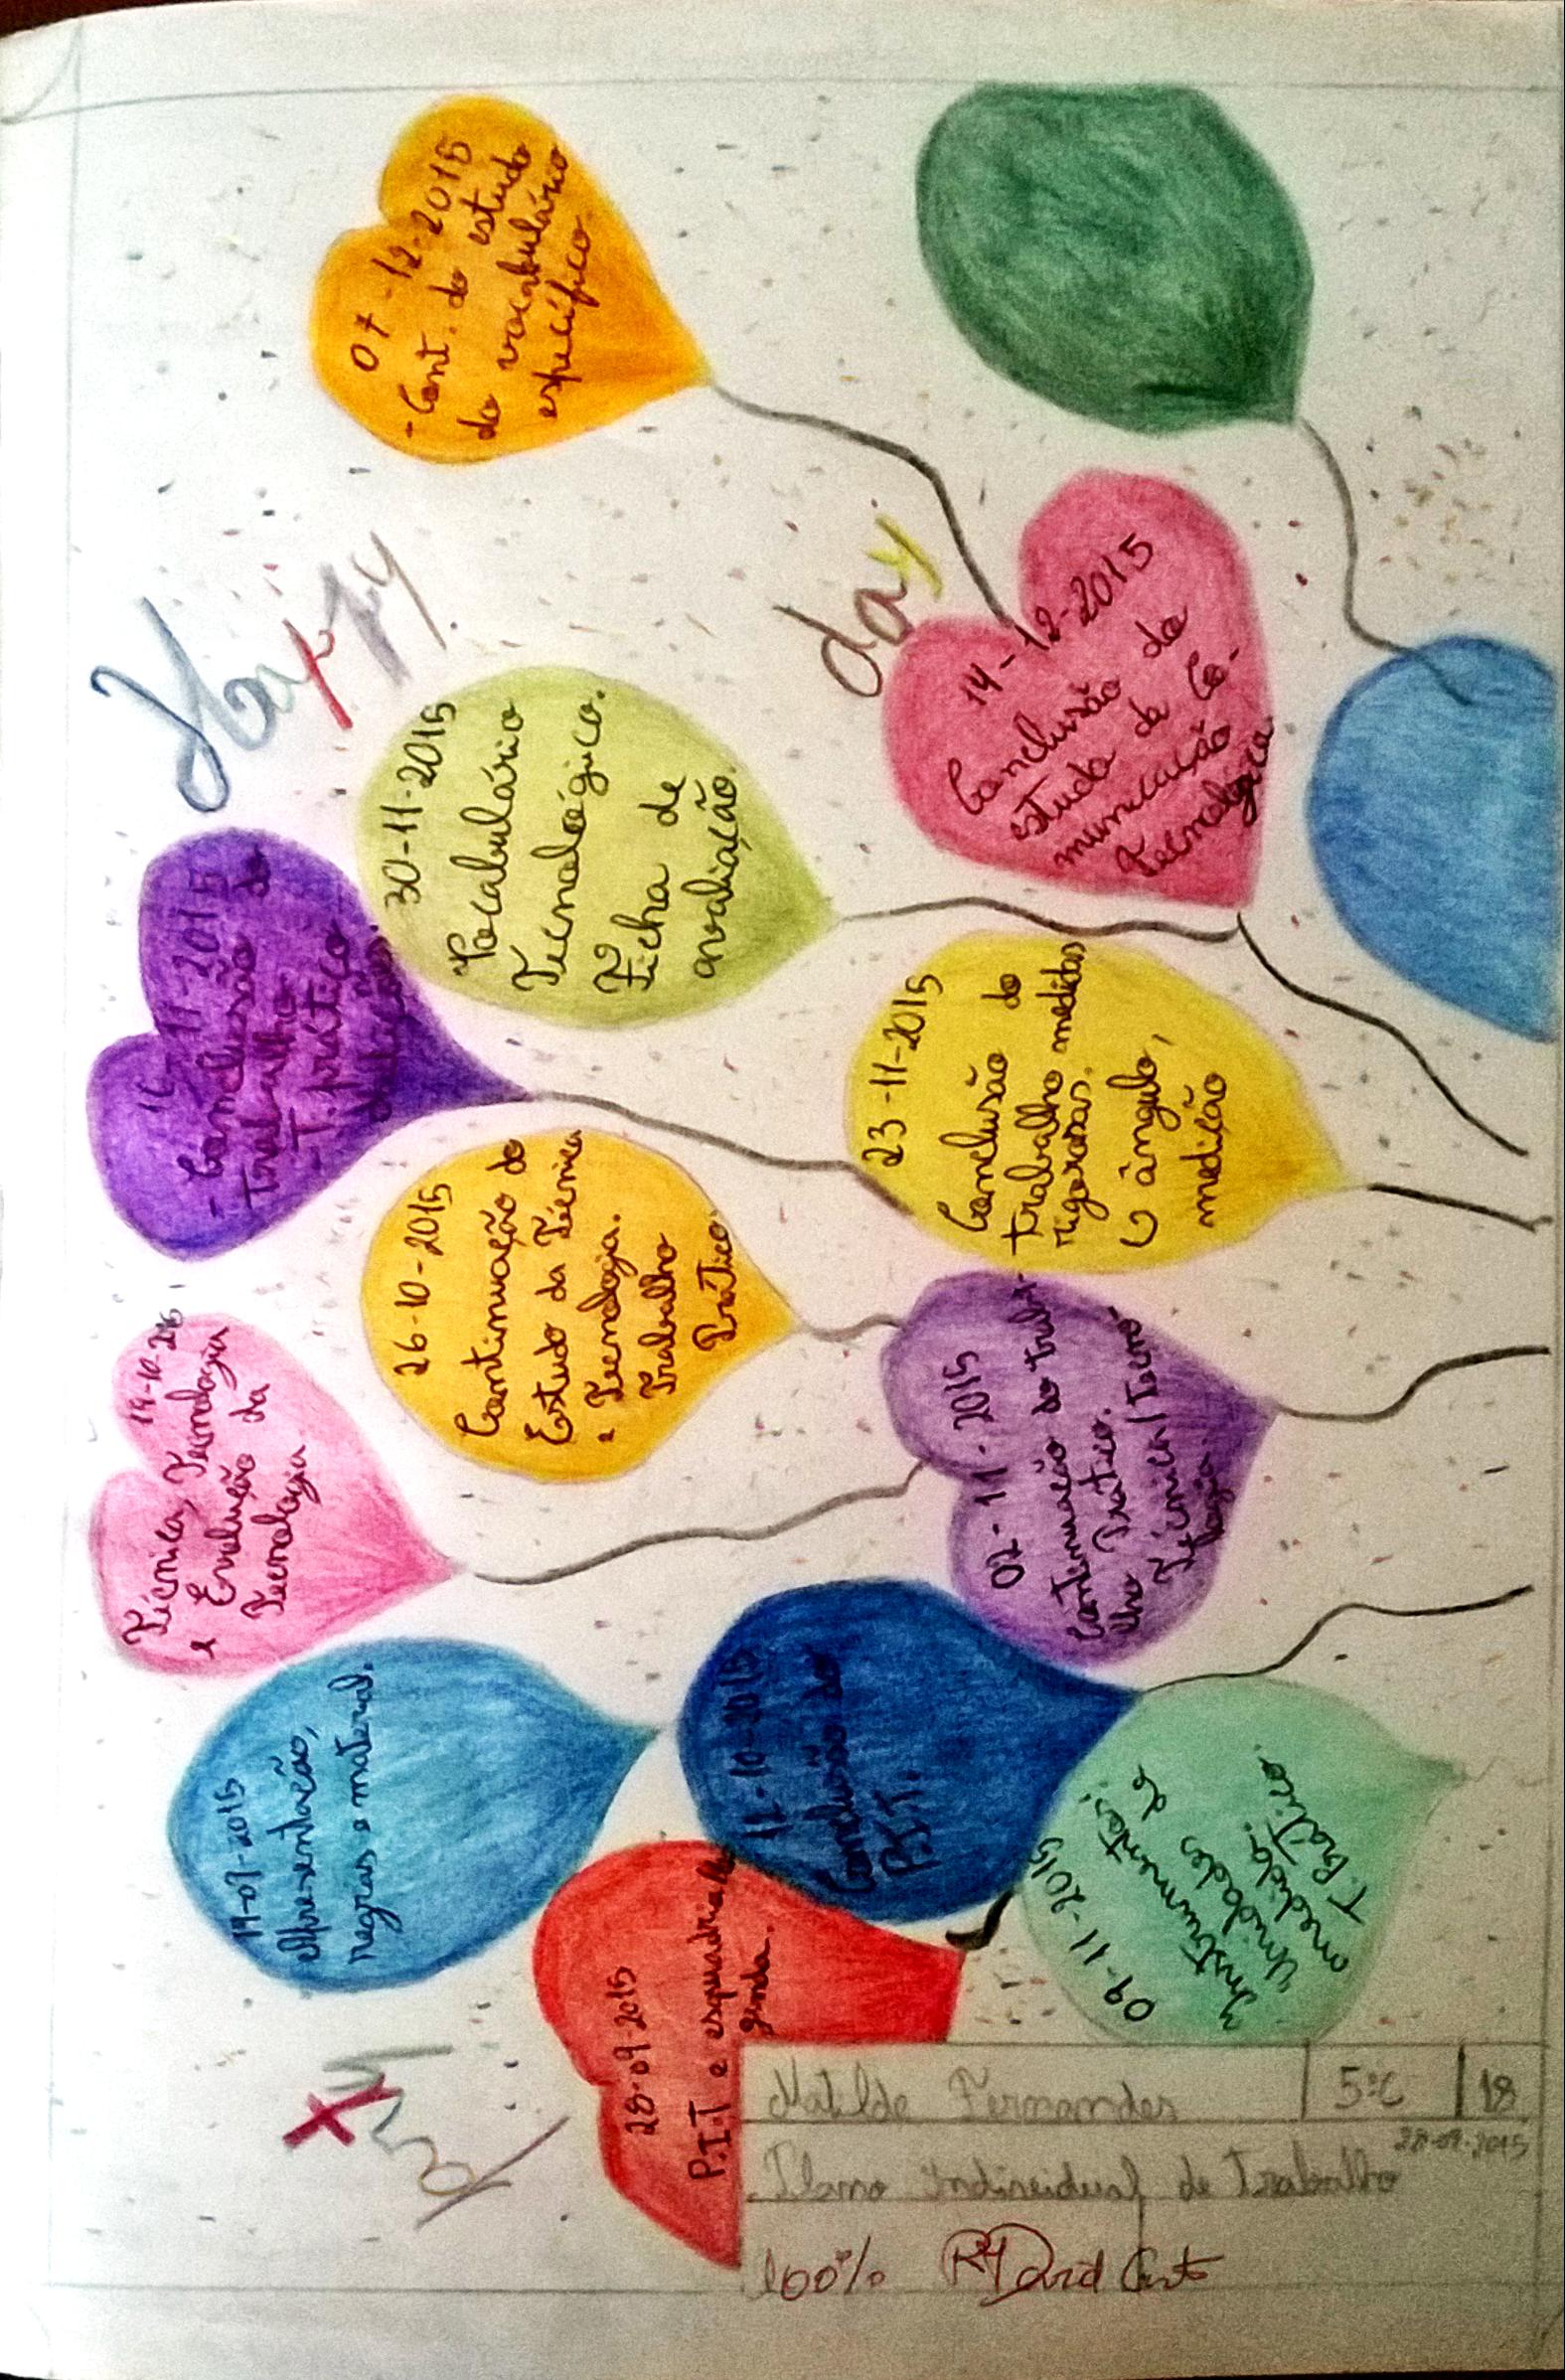 Happy
day
07-12-2015
- Cont. do estudo
do vocabulário
específico.
14-12-2015
Conclusão do
estudo de Co-
municação
Tecnológica
30-11-2015
Vocabulário
Tecnológico.
Ficha de
avaliação.
16-11-2015
- Conclusão do
trabalho
- T. prático
23-11-2015
Conclusão do
trabalho medidas
rigorosas.
↳ ângulo,
medição
26-10-2015
Continuação do
Estudo da Técnica
e Tecnologia.
Trabalho
Prático
02-11-2015
Continuação do traba-
lho Prático.
Técnica/Tecno
logia.
19-10-
Técnica, Tecnologia
e Evolução da
Tecnologia.
12-10-2015
Conclusão do
P.I.T.
09-11-2015
Instrumentos;
Unidades de
medida.
T. Prático
2015
Apresentação,
regras e material.
28-09-2015
P.I.T e esquadria
Matilde Fernandes 5ºC 18
28-09-2015
Plano Individual de Trabalho
100%